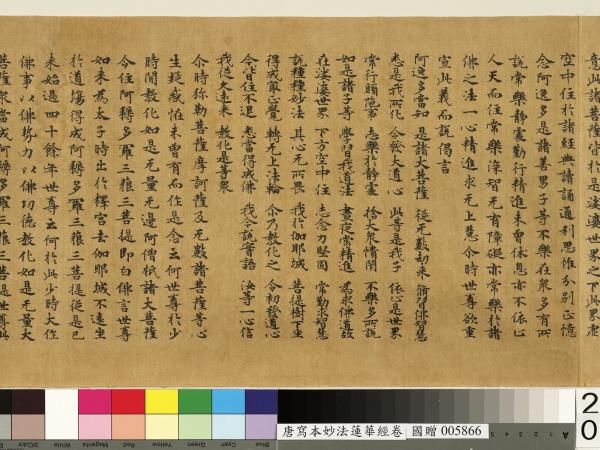 意此諸菩薩皆於是娑婆世界之下此界虛
空中住於諸經典讀誦通利思惟分別正憶
念阿逸多是諸善男子等不樂在眾多有所
說常樂靜處勤行精進未曾休息亦不依止
人天而住常樂深智无有障礙亦常樂於諸
佛之法一心精進求无上慧尒時世尊欲重
宣此義而說偈言
阿逸多當知 是諸大菩薩 從无數劫來 修習佛智慧
悉是我所化 令發大道心 此等是我子 依止是世界
常行頭陁事 志樂於靜處 捨大眾憒閙 不樂多所說
如是諸子等 學習我道法 晝夜常精進 為求佛道故
在娑婆世界 下方空中住 志念力堅固 常勤求智慧
說種種妙法 其心无所畏 我於伽耶城 菩提樹下坐
得成最正覺 轉无上法輪 尒乃教化之 令初發道心
今皆住不退 悉當得成佛 我今說實語 汝等一心信
我從久遠來 教化是等眾
尒時弥勒菩薩摩訶薩及无數諸菩薩等心
生疑惑怪未曾有而作是念云何世尊於少
時間教化如是无量无邊阿僧祇諸大菩薩
令住阿耨多羅三藐三菩提即白佛言世尊
如來為太子時出於釋宮去伽耶城不遠坐
於道場得成阿耨多羅三藐三菩提從是已
來始過四十餘年世尊云何於此少時大作
佛事以佛勢力以佛功德教化如是无量大
菩薩眾當成阿耨多羅三藐三菩提世尊此
3/Color White Magenta Red Yellow Green Cyan Blue
唐寫本妙法蓮華經卷 國贈 005866
A
20